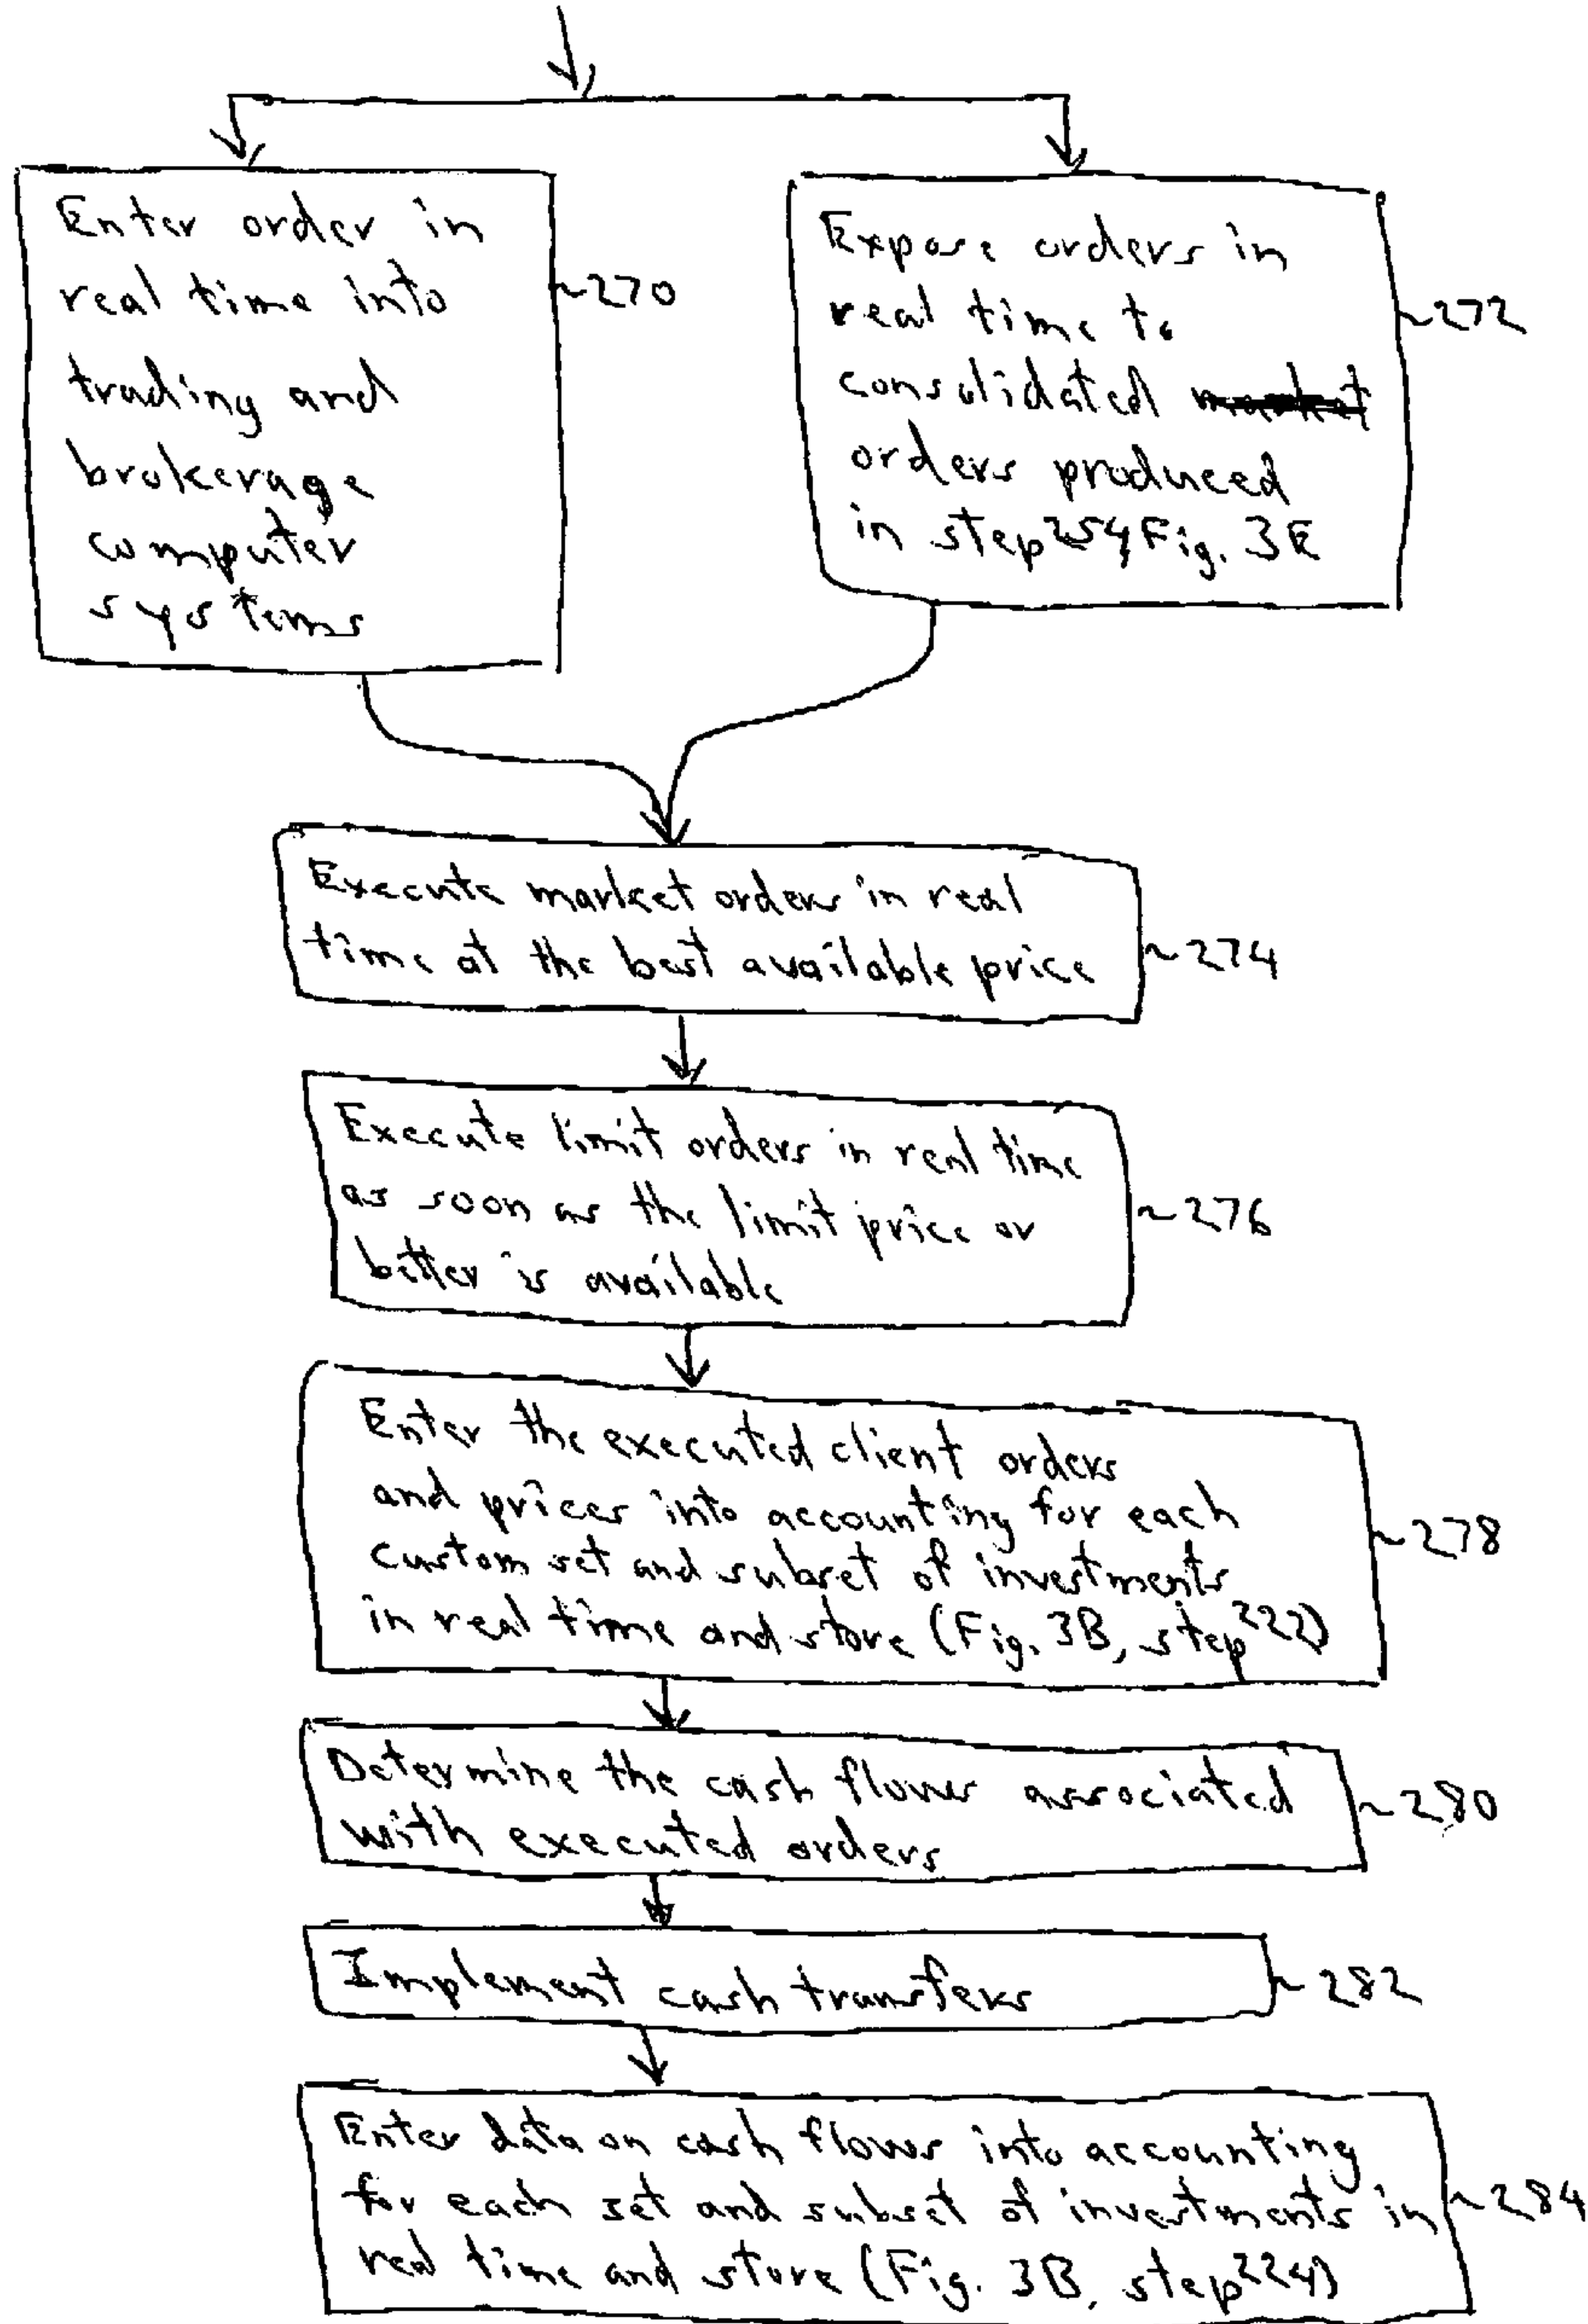 Enter order in
real time into
trading and
brokerage
computer
systems
~270
Expose orders in
real time to
consolidated market
orders produced
in step 254, Fig. 3E
~272
Execute market orders in real
time at the best available price
~274
Execute limit orders in real time
as soon as the limit price or
better is available
~276
Enter the executed client orders
and prices into accounting for each
custom set and subset of investments
in real time and store (Fig. 3B, step 222)
~278
Determine the cash flows associated
with executed orders
~280
Implement cash transfers
~282
Enter data on cash flows into accounting
for each set and subset of investments in
real time and store (Fig. 3B, step 224)
~284